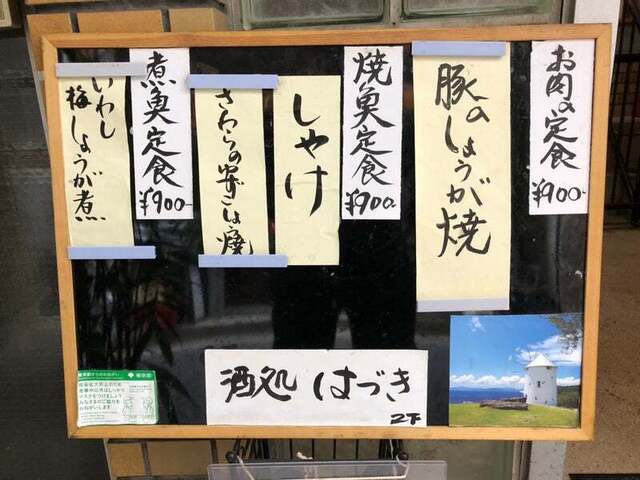 お肉の定食
¥900-
豚のしょうが焼
焼魚定食
¥900-
しゃけ
煮魚定食
¥900-
いわし
梅しょうが煮
酒処 はづき
2F